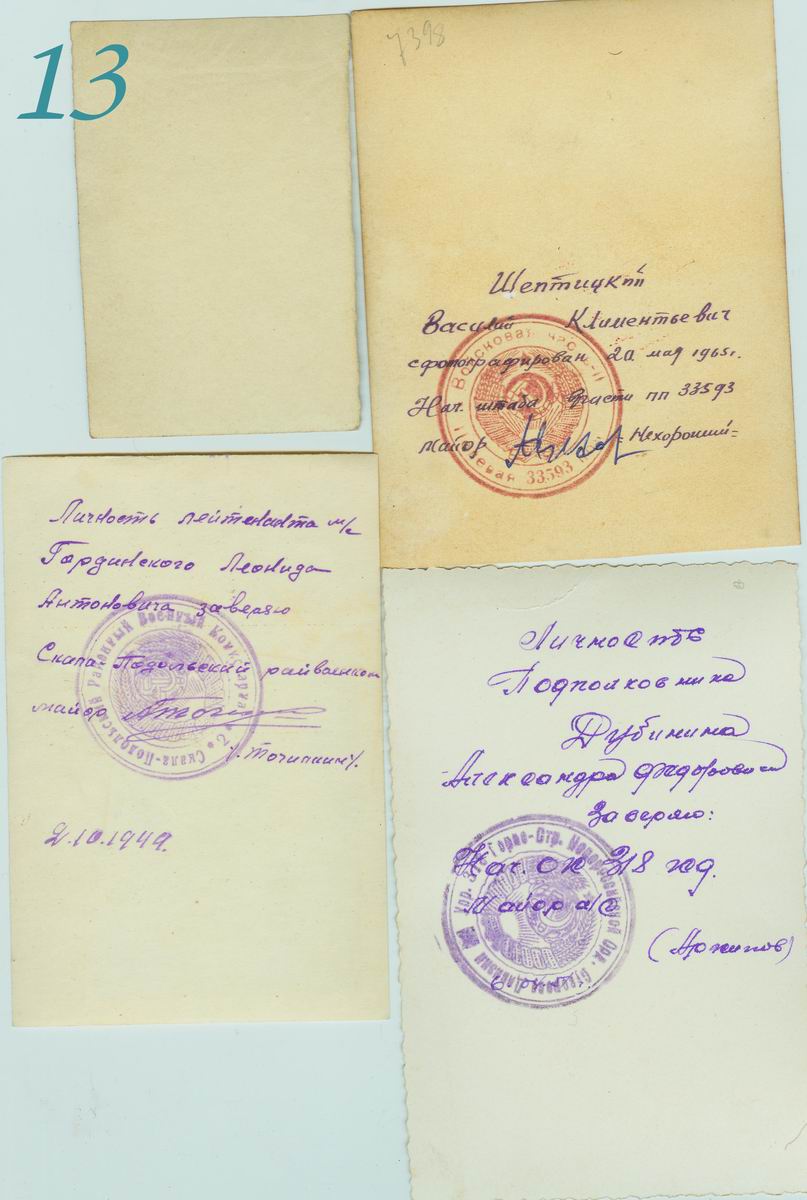 13
7398
Шептицкий
Василий Климентьевич
сфотографирован 20 мая 1965 г.
Нач. штаба части пп 33593
майор =Нехороший=
Войсковая часть-II
Полевая 33593
Личность лейтенанта м/с
Гординского Леонида
Антоновича заверяю
Скала-Подольский райвоенком
майор
/. Точилкин /.
Скала-Подольский Районный Военный Комиссариат
* 2 *
2.10.1949.
Личность
Подполковника
Дубинина
Александра Федоровича
Заверяю:
Нач. ОК 318 гсд.
Майор а/с
(Архипов)
318 Горно-Стр. Новороссийской Орд. Суворова Дивизии